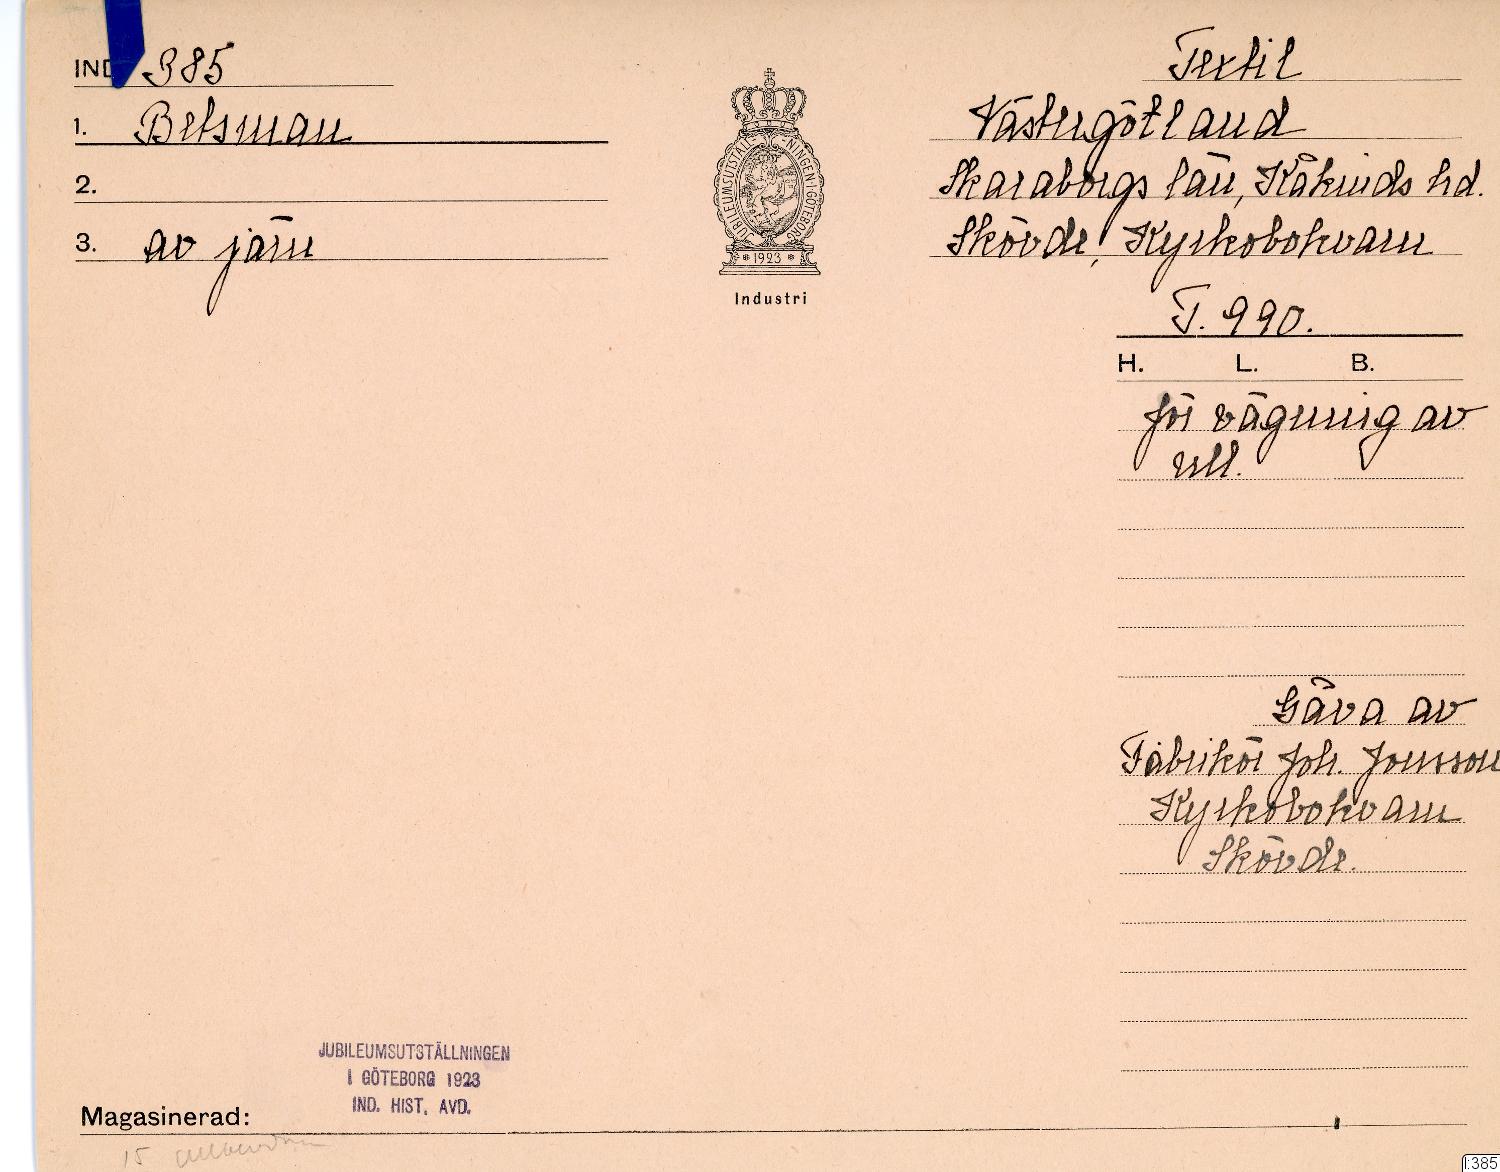 IND 385
1. Betsman
2.
3. av järn
JUBILEUMSUTSTÄLLNINGEN I GÖTEBORG
1923
Industri
Textil
Västergötland
Skaraborgs län, Kåkinds hd.
Skövde, Kyrkobokvarn
T. 990.
H. L. B.
för vägning av
ull.
Gåva av
Fabrikör Joh. Jonsson
Kyrkobokvarn
Skövde.
JUBILEUMSUTSTÄLLNINGEN
I GÖTEBORG 1923
IND. HIST. AVD.
Magasinerad:
15
I:385